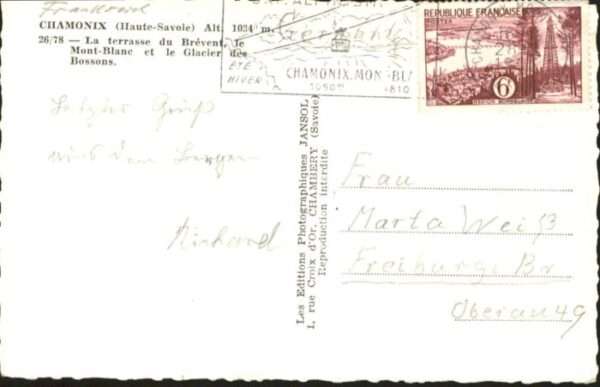 Frankreich
CHAMONIX (Haute-Savoie) Alt. 1034 m.
26/78 — La terrasse du Brévent, le
Mont-Blanc et le Glacier des
Bossons.
ÉTÉ
HIVER
CHAMONIX-MON BLA
1050m
RÉPUBLIQUE FRANÇAISE
6F
Letzter Gruß
aus den Bergen
Richard
Les Editions Photographiques JANSOL
1, rue Croix d'Or, CHAMBERY (Savoie)
Reproduction interdite
Frau
Marta Weiß
Freiburg i Br
Oberau 49